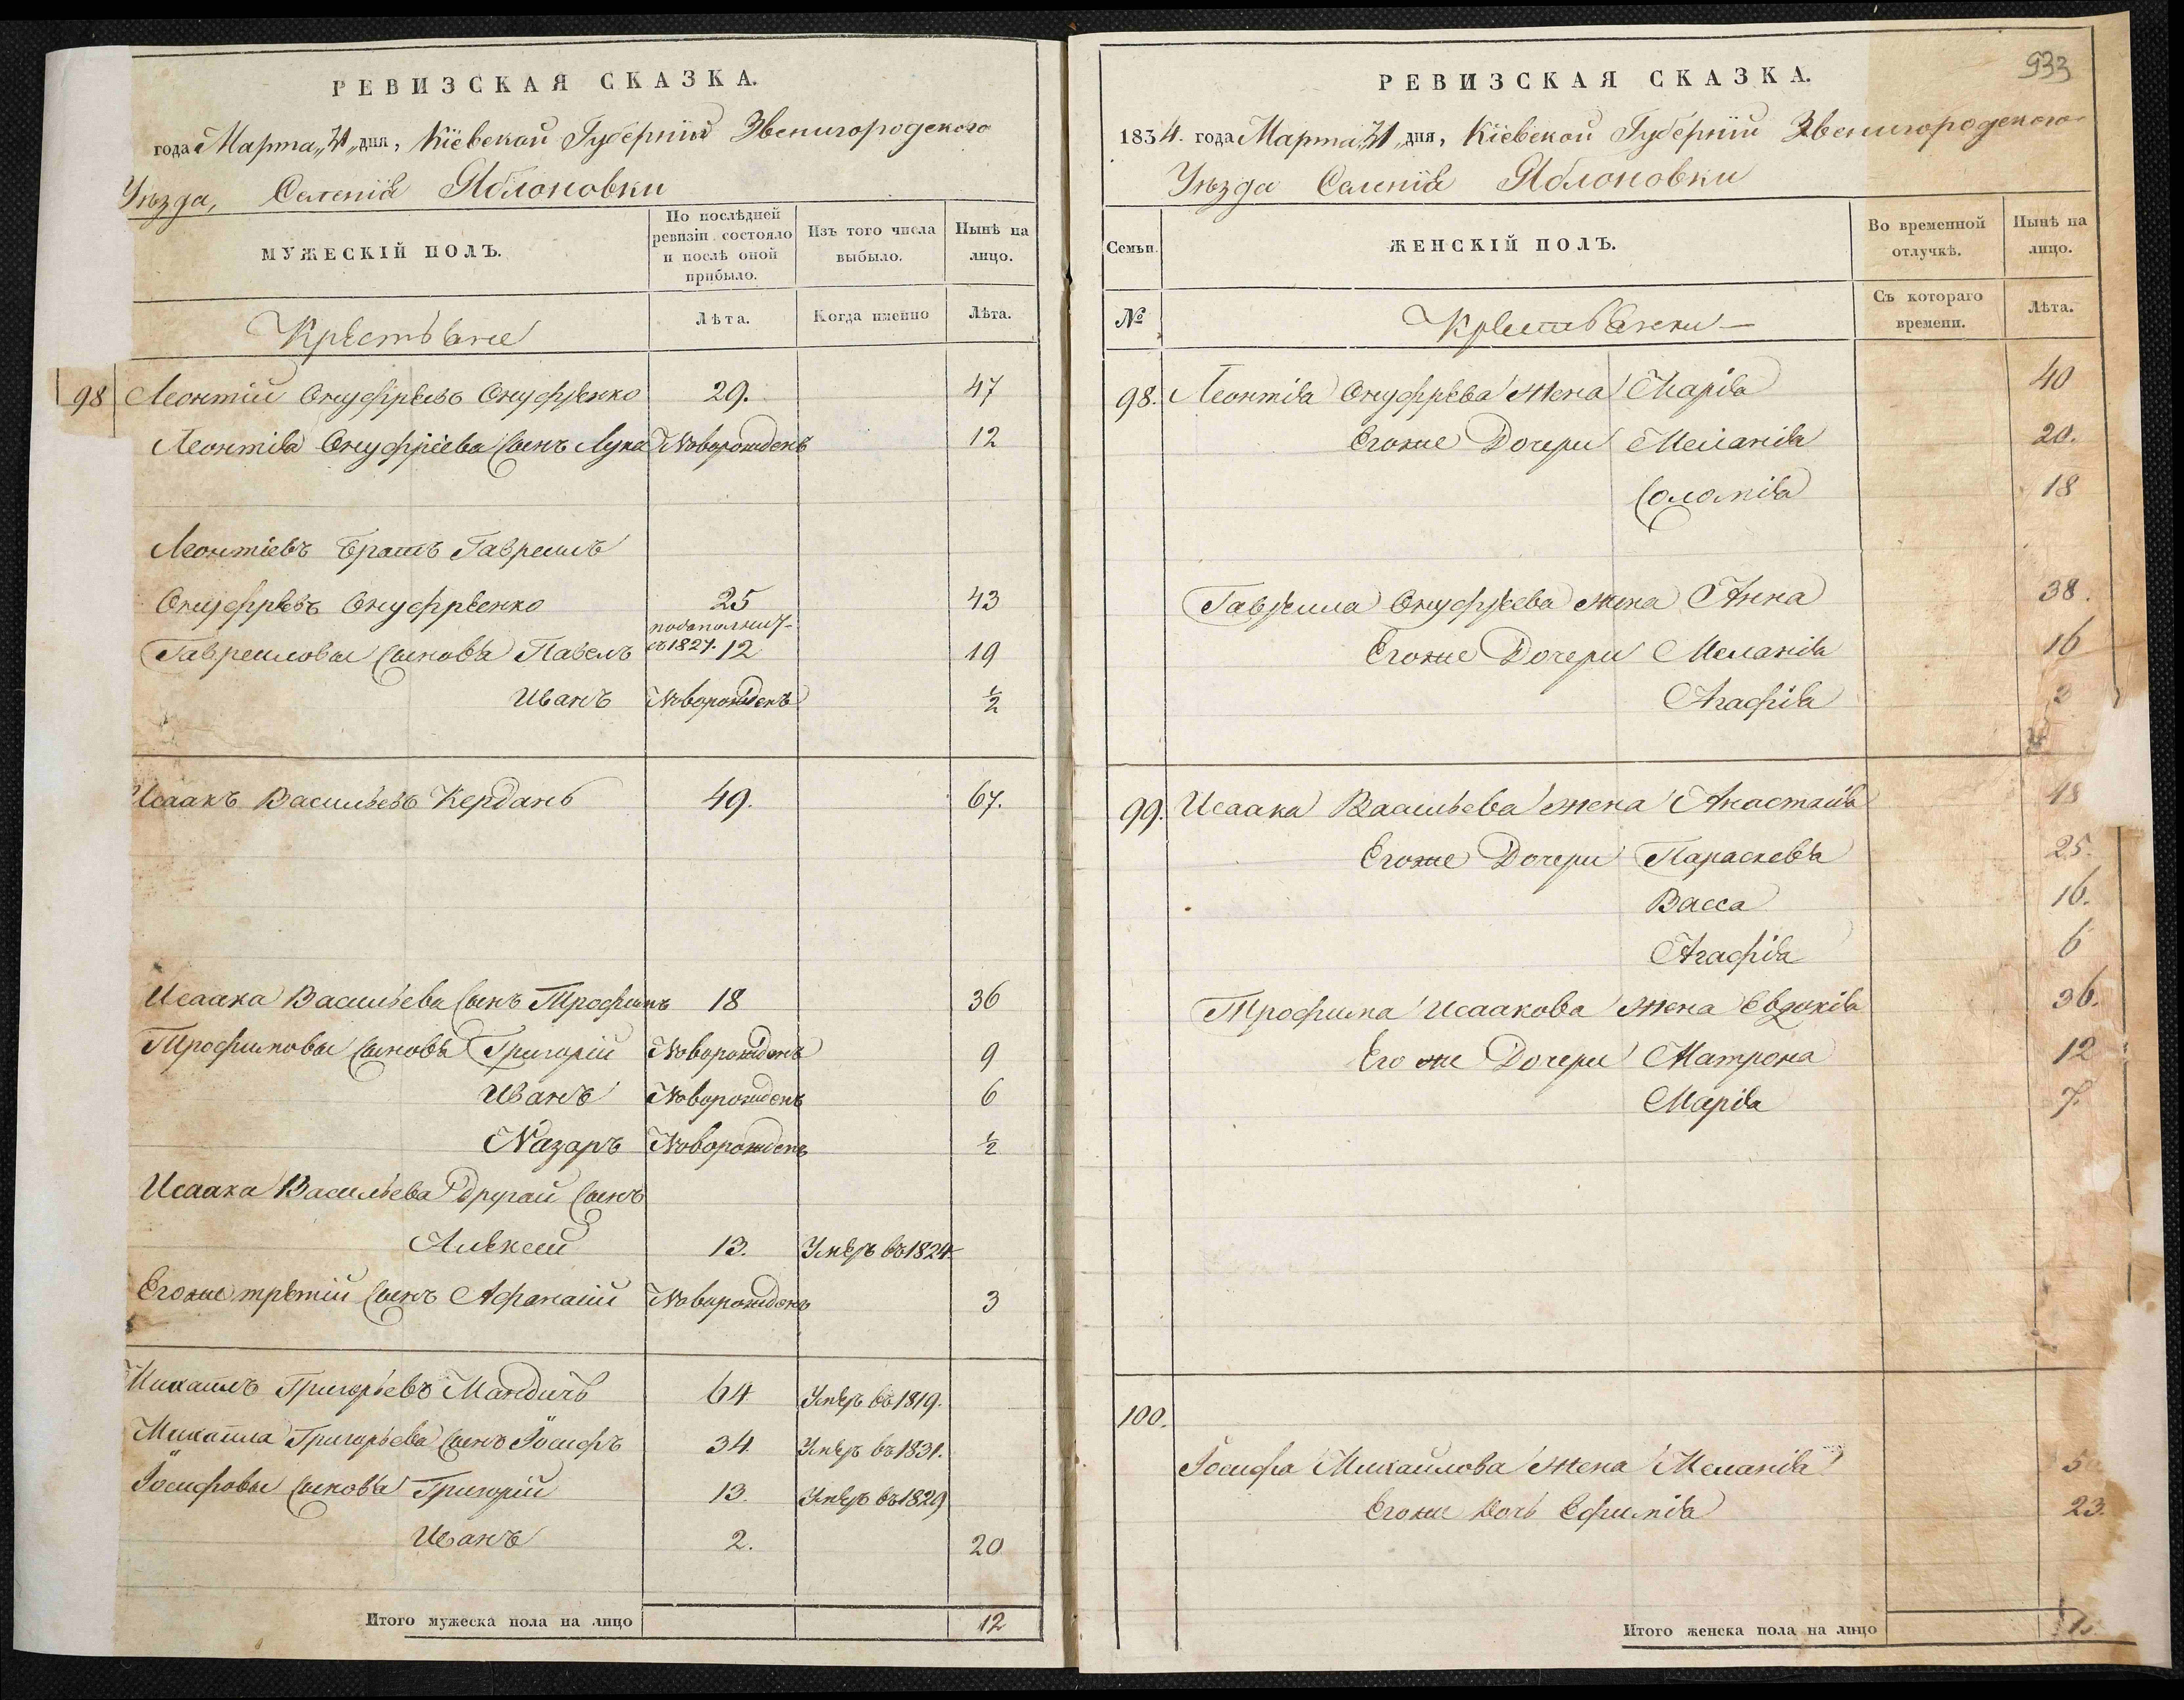 РЕВИЗСКАЯ СКАЗКА.
года Марта „31„ дня, Кіевской Губерніи Звенигородскаго
Уѣзда, Селенія Яблоновки
МУЖЕСКІЙ ПОЛЪ.
По послѣдней ревизіи состояло и послѣ оной прибыло.
Изъ того числа выбыло.
Нынѣ на лицо.
Крестьяне
Лѣта.
Когда именно
Лѣта.
98 Леонтій Онуфріевъ Онуфрѣенко 29. 47
Леонтія Онуфріева сынъ Лука Новорожденъ 12
Леонтіевъ братъ Гавриилъ
Онуфріевъ Онуфріенко 25 43
Гавриловы сыновья Павелъ въ 1827. 12 19
Иванъ Новорожденъ ½
Исаакъ Васильевъ Керданъ 49. 67.
Исаака Васильева сынъ Трофимъ 18 36
Трофимовы сыновья Григорій Новорожденъ 9
Иванъ Новорожденъ 6
Назаръ Новорожденъ ½
Исаака Васильева другой сынъ
Алексей 13. Умеръ въ 1824
Егоже третій сынъ Афанасій Новорожденъ 3
Михаилъ Григорьевъ Мандичъ 64 Умеръ въ 1819.
Михаила Григорьева сынъ Іосифъ 34 Умеръ въ 1831.
Іосифовы сыновья Григорій 13. Умеръ въ 1829
Иванъ 2. 20
Итого мужеска пола на лицо 12
933
РЕВИЗСКАЯ СКАЗКА.
1834. года Марта „31„ дня, Кіевской Губерніи Звенигородскаго
Уѣзда Селенія Яблоновки
Семьи.
ЖЕНСКІЙ ПОЛЪ.
Во временной отлучкѣ.
Нынѣ на лицо.
№
Крестьянки
Съ котораго времени.
Лѣта.
98. Леонтія Онуфріева жена Марія 40
Егоже Дочери Меланія 20.
Соломія 18
Гавриила Онуфріева жена Анна 38.
Егоже Дочери Меланія 16
Агафія
99. Исаака Васильева жена Анастасія 48
Егоже Дочери Параскевья 25.
Васса 16.
Агафія 6
Трофима Исаакова жена Евдокія 36.
Его же Дочери Матрона 12
Марія 7.
100.
Іосифа Михайлова жена Меланія
Егоже дочь Ефимія 23.
Итого женска пола на лицо